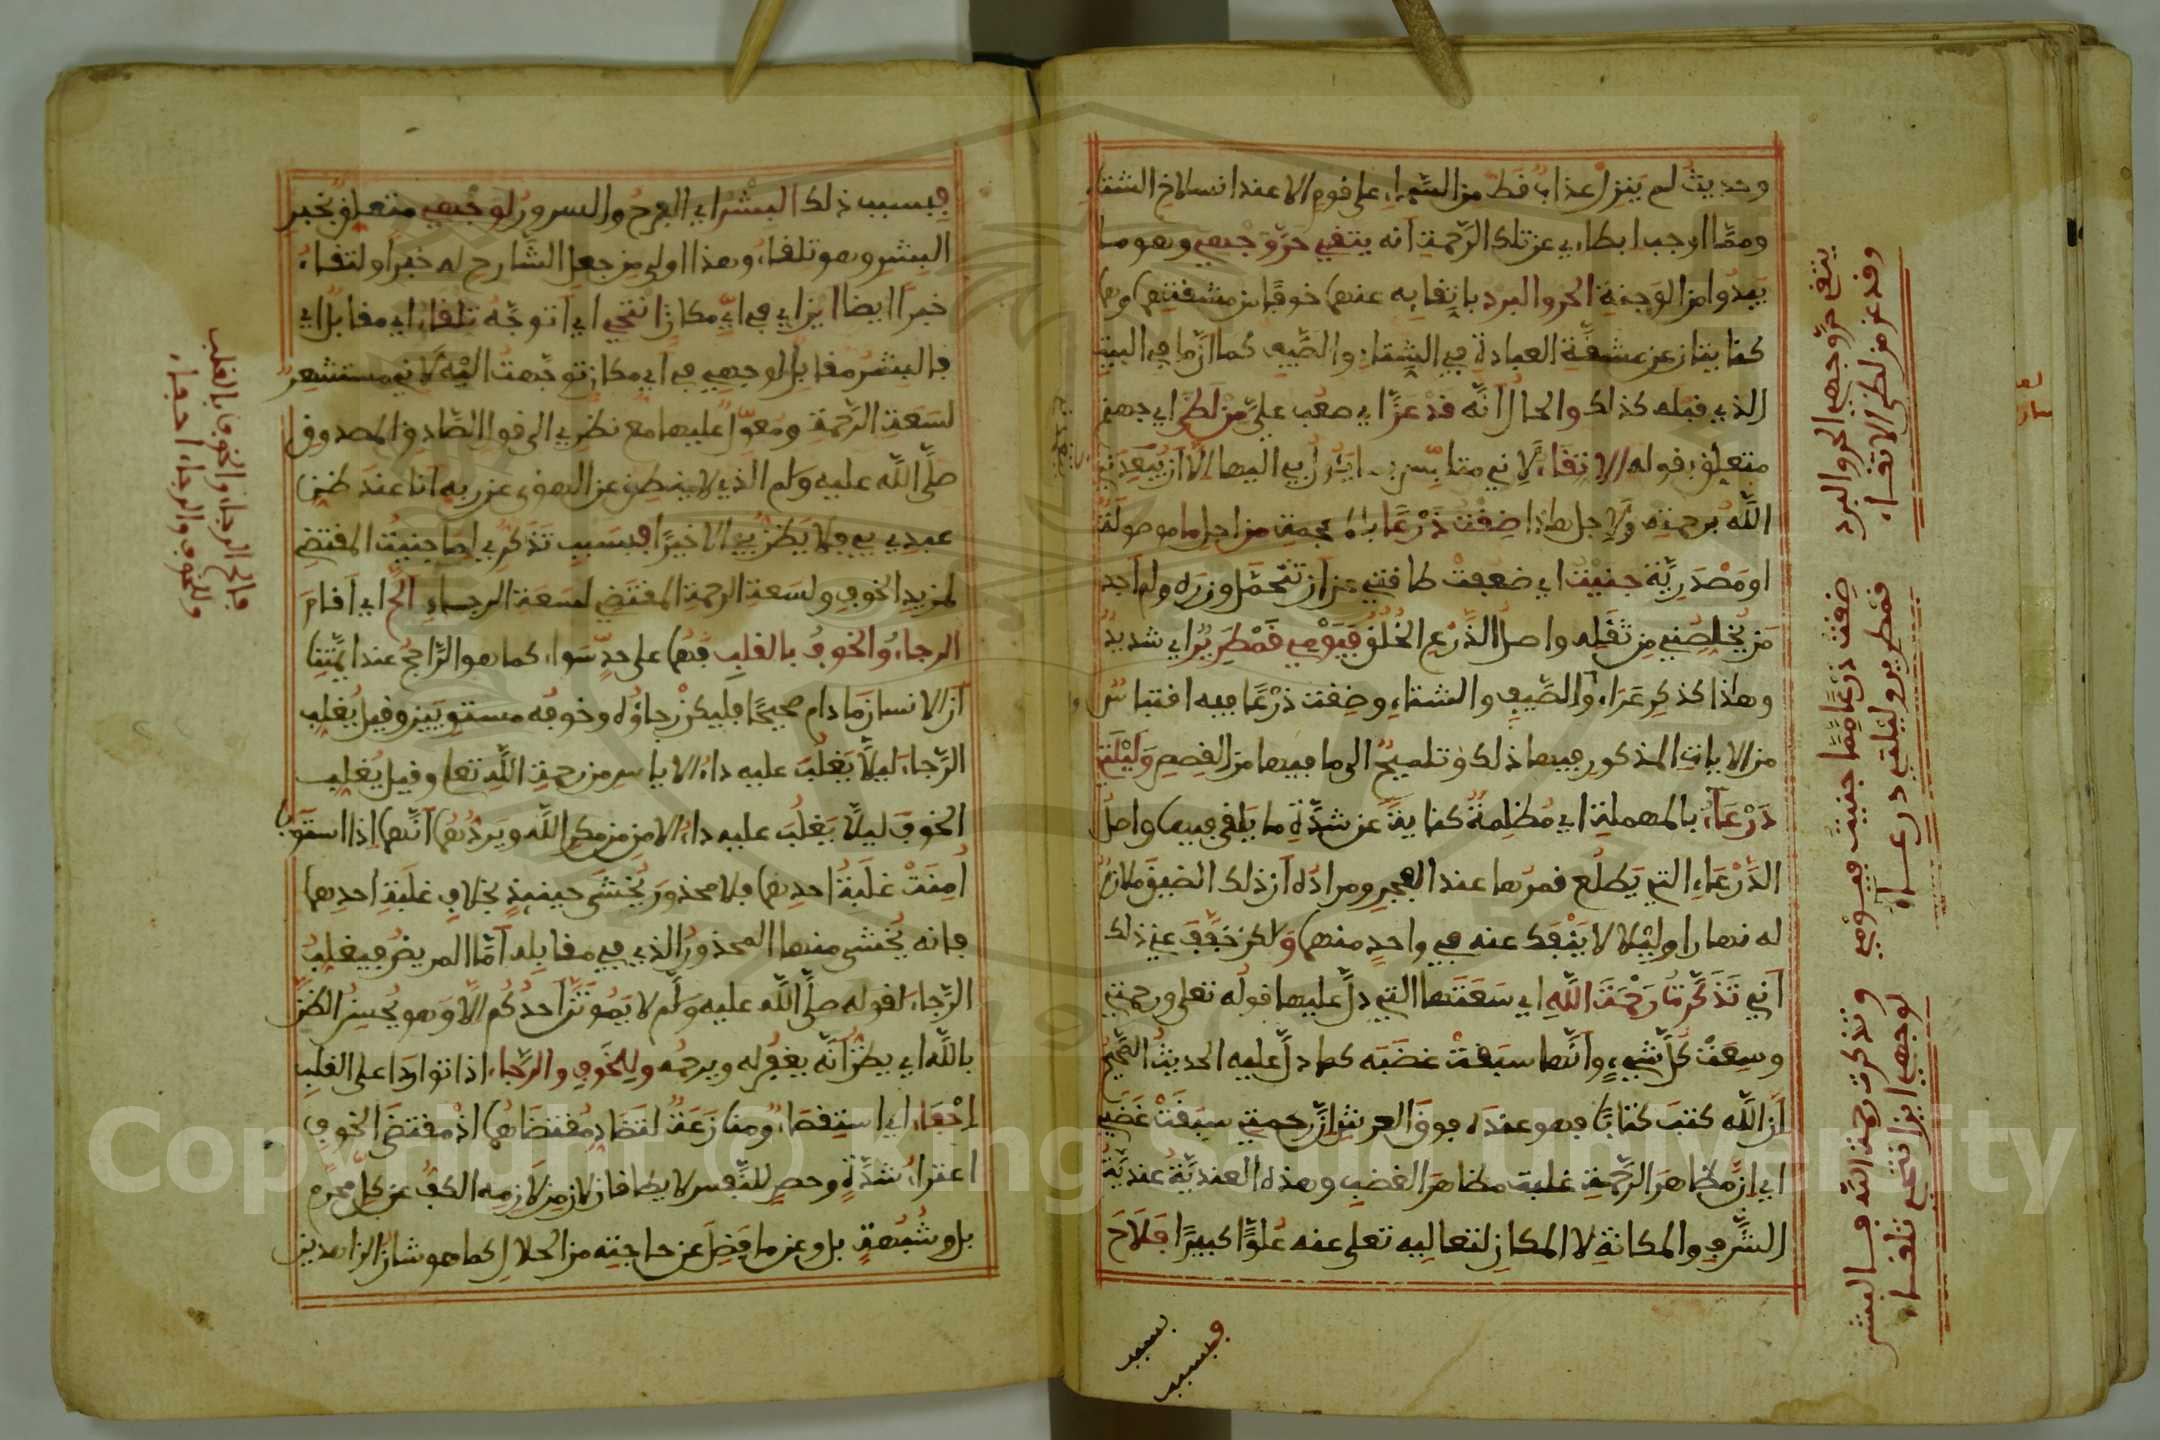 وحديث لم ينزل عذاب قط من السماء على قوم الا عند انسلاخ الشتاء
ومما اوجب ابطاءي عن تلك الرحمة انه يتقي حر وجهي وهو ما
يبدوا من الوجنة الحر والبرد باتقايه عنهما خوفا من مشقتهما وهما
كنايتان عن مشقة العبادة في الشتاء والصيف كما ان ما في البيت
الذي قبله كذلك والحال انه قد عز اي صعب علي من لظى اي جهنم
متعلق بقوله الاتقاء لاني متلبس بما يئول بي اليها الا ان يتغمدني
الله برحمته ولاجل هذا ضقت ذرعا بالمعجمة من اجل ما موصولة
او مصدرية جنيت اي ضعفت طاقتي من ان تتحمل وزره ولم اجد
من يخلصني من ثقله واصل الذرع الخلق فيومي قمطرير اي شديد
وهذا كذكر عراء والصيف والشتاء وضقت ذرعا فيه اقتباس
من الايات المذكور فيها ذلك وتلميح الى ما فيها من القصص وليلتي
درعاء بالمهملة اي مظلمة كناية عن شدة ما يلقى فيها واصل
الدرعاء التي يطلع قمرها عند الفجر ومراده ان ذلك الضيق ملازم
له نهارا وليلا لا ينفك عنه في واحد منهما ولكن خفف عني ذلك
اني تذكرت رحمت الله اي سعتها التي دل عليها قوله تعلى ورحمتي
وسعت كل شيء وانها سبقت غضبه كما دل عليه الحديث الصحيح
ان الله كتب كتابا فهو عنده فوق العرش ان رحمتي سبقت غضبي
اي ان مظاهر الرحمة غلبة مظاهر الغضب وهذه العندية عندية
الشرف والمكانة لا المكان لتعاليه تعلى عنه علوا كبيرا فلاح
بسبب
فبسبب
يتقي حر وجهي الحر والبرد
وقد عز من لظى الاتقاء
ضقت ذرعا مما جنيت فيومي
قمطرير وليلتي درعاء
وتذكرت رحمة الله فالبشر
لوجهي اين انتحى تلقاء
فبسبب ذلك البشر اي الفرح والسرور لوجهي متعلق بخبر
البشر وهو تلقاء وهذا اولى من جعل الشارح له خبرا ولتقاء
خبرا ايضا اين اي في اي مكان انتحى اي اتوجه تلقاء اي مقابل اي
فالبشر مقابل لوجهي في اي مكان توجهت اليه لاني مستشعر
لسعة الرحمة ومعول عليها مع نظري الى قول الصادق المصدوق
صلى الله عليه وسلم الذي لا ينطق عن الهوى عن ربه انا عند ظن
عبدي بي فلا يظن بي الا خيرا فبسبب تذكري لما جنيت المقتضي
لمزيد الخوف ولسعة الرحمة المقتضي لسعة الرجاء الح اي اقام
الرجاء والخوف بالقلب فهما على حد سواء كما هو الراجح عند ايمتنا
ان الانسان ما دام صحيحا فليكن رجاؤه وخوفه مستويين وقيل يغلب
الرجاء ليلا يغلب عليه داء الاياس من رحمة الله تعلى وقيل يغلب
الخوف ليلا يغلب عليه داء الامن من مكر الله ويردهما انهما اذا استويا
امنت غلبة احدهما فلا محذور يخشى حينيذ بخلاف غلبة احدهما
فانه يخشى منها المحذور الذي في مقابله اما المريض فيغلب
الرجاء لقوله صلى الله عليه وسلم لا يموتن احدكم الا وهو يحسن الظن
بالله اي يظن انه يغفر له ويرحمه وللخوف والرجاء اذا تواردا على القلب
احفاء اي استقصاء ومنازعة لتضاد مقتضاهما اذ مقتضى الخوف
اعتراء شدة وحصر للنفس لا يطاقان لان من لازمه الكف عن كل محرم
بل وشبهة بل وعن ما فضل عن حاجته من الحلال كما هو شان الزاهدين
فالح الرجاء والخوف بالقلب
وللخوف والرجاء احفاء
Copyright © King Saud University